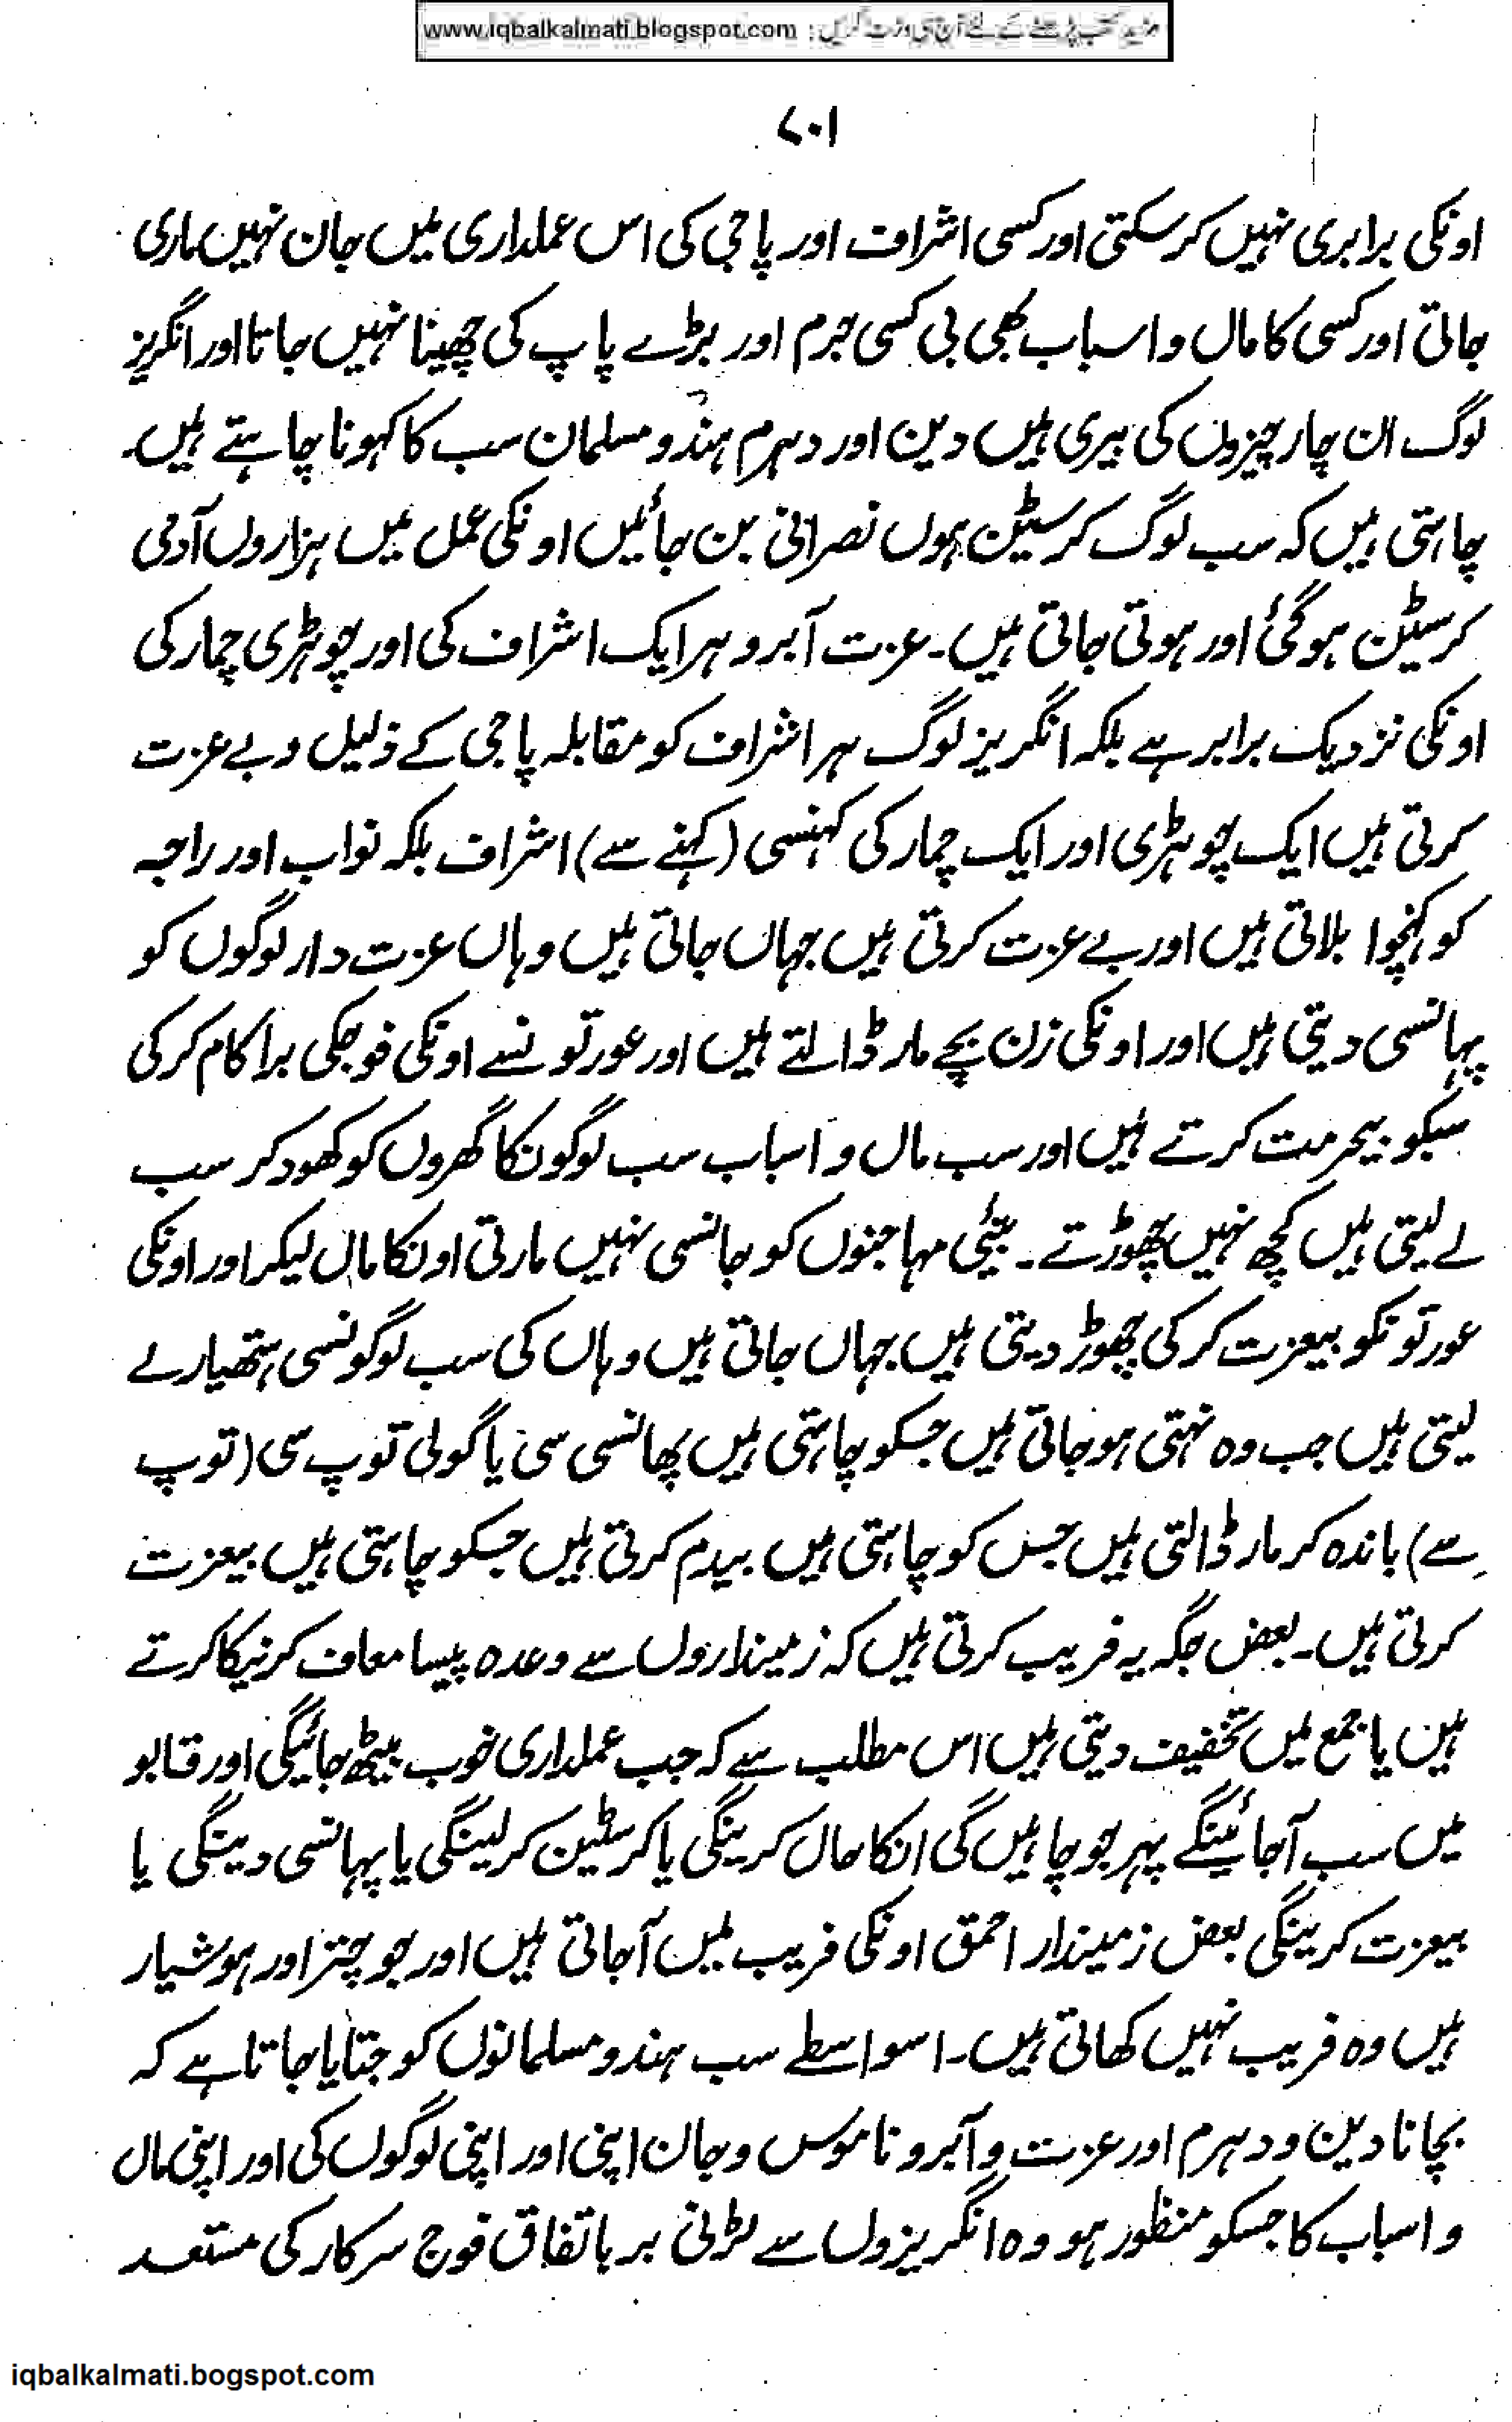 مزید کتب پڑھنے کے لئے آج ہی وزٹ کریں : www.iqbalkalmati.blogspot.com
۷۰۱
اونکی برابری نہیں کرسکتی اور کسی اشراف اور پاجی کی اس عملداری میں جان نہیں ماری
جاتی اور کسی کا مال و اسباب کبھی بی کسی جرم اور بڑے پاپ کی چھینا نہیں جاتا اور انگریز
لوگ ان چار چیزوں کی بیری ہیں دین اور دہرم ہندو مسلمان سب کا کہونا چاہتے ہیں۔
چاہتی ہیں کہ سب لوگ کرسٹین ہوں نصرانی بن جائیں اونکی عمل میں ہزاروں آدمی
کرسٹین ہوگئ اور ہوتی جاتی ہیں۔ عزت آبرو ہر ایک اشراف کی اور چوہڑی چمار کی
اونکی نزدیک برابر ہے بلکہ انگریز لوگ ہر اشراف کو مقابلہ پاجی کے ذلیل و بے عزت
کرتی ہیں ایک چوہڑی اور ایک چمار کی کہنسی (کہنے سے) اشراف بلکہ نواب اور راجہ
کو کہنچوا بلاتی ہیں اور بے عزت کرتی ہیں جہاں جاتی ہیں وہاں عزت دار لوگوں کو
پہانسی دیتی ہیں اور اونکی زن بچے مار ڈالتے ہیں اور عورتونسے اونکی فوجکی برا کام کرکی
سبکو بیحرمت کرتے ہیں اور سب مال و اسباب سب لوگونکا گھروں کو کھود کر سب
لے لیتی ہیں کچھ نہیں چھوڑتے۔ بنیٔی مہاجنوں کو جانسی نہیں مارتی اونکا مال لیکر اور اونکی
عورتونکو بیعزت کرکی چھوڑ دیتی ہیں جہاں جاتی ہیں وہاں کی سب لوگونسی ہتھیار لے
لیتی ہیں جب وہ نہتی ہوجاتی ہیں جسکو چاہتی ہیں پھانسی سی یا گولی توپ سی (توپ
سے) باندہ کر مار ڈالتی ہیں جس کو چاہتی ہیں بیدم کرتی ہیں جسکو چاہتی ہیں بیعزت
کرتی ہیں۔ بعض جگہ یہ فریب کرتی ہیں کہ زمینداروں سے وعدہ پیسا معاف کرنیکا کرتے
ہین یا جمع میں تخفیف دیتی ہیں اس مطلب سے کہ جب عملداری خوب بیٹھ جائیگی اور قابو
میں سب آجائینگے پہر جو چاہیں گی انکا حال کرینگی یا کرسٹین کرلینگی یا پہانسی دینگی یا
بیعزت کرینگی بعض زمیندار احمق اونکی فریب میں آجاتی ہیں اور جو چتر اور ہوشیار
ہیں وہ فریب نہیں کھاتی ہیں۔ اسواسطے سب ہندو مسلمانوں کو جتایا جاتا ہے کہ
بچانا دین و دہرم اور عزت و آبرو ناموس و جان اپنی اور اپنی لوگوں کی اور اپنی مال
و اسباب کا جسکو منظور ہو وہ انگریزوں سے لڑنی بر باتفاق فوج سرکار کی مستعد
iqbalkalmati.bogspot.com